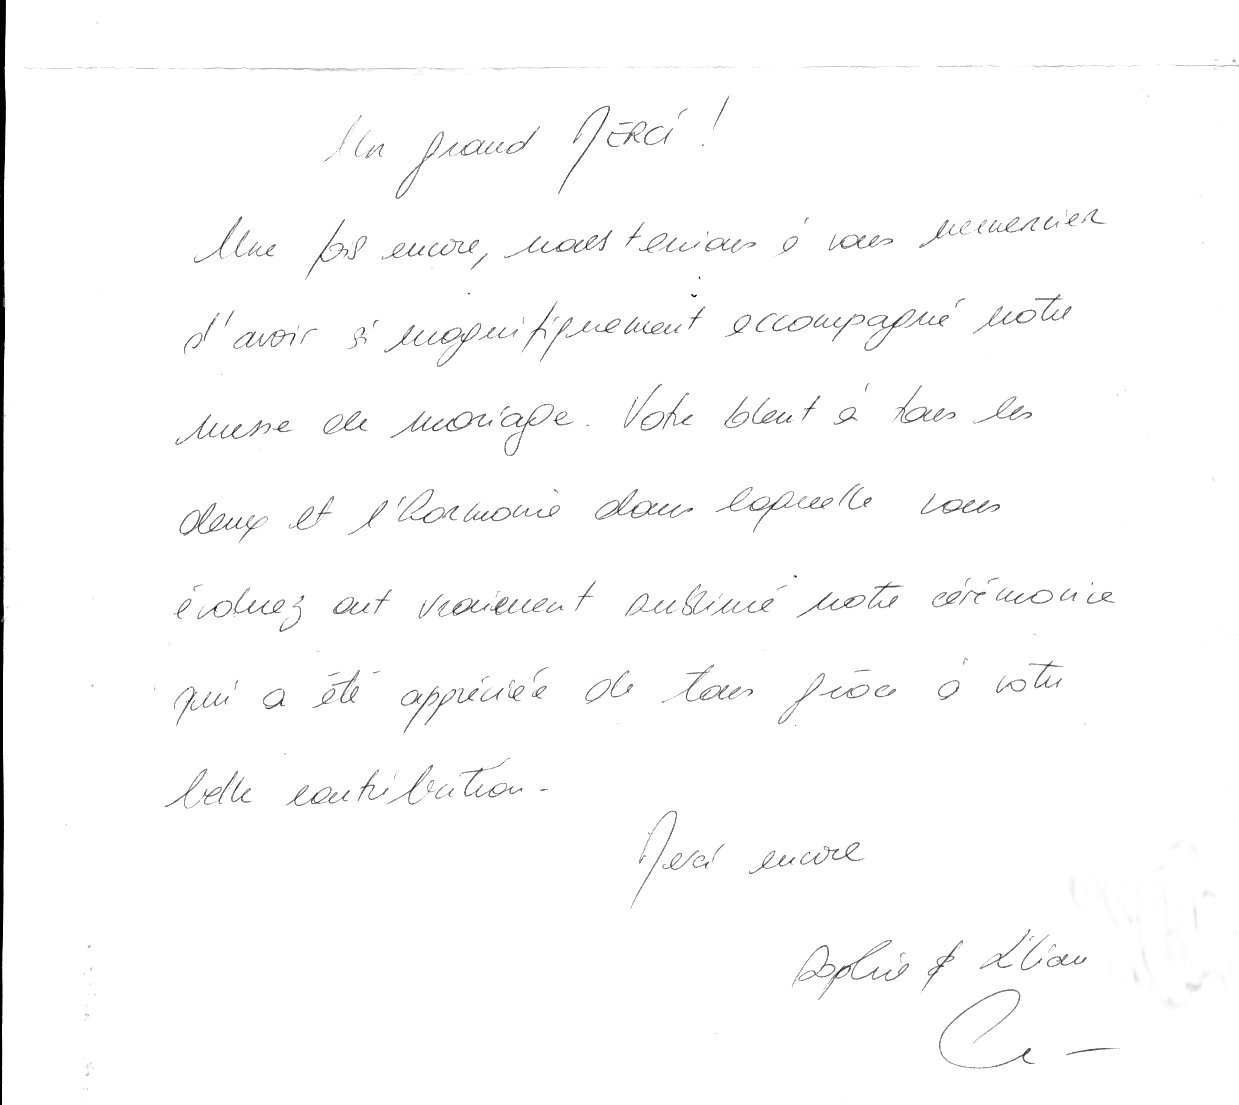 Un grand MERCI !
Une fois encore, nous tenions à vous remercier
d'avoir si magnifiquement accompagné notre
messe de mariage. Votre talent à tous les
deux et l'harmonie dans laquelle vous
évoluez ont vraiment sublimé notre cérémonie
qui a été appréciée de tous grâce à votre
belle contribution.
Merci encore
Sophie & Lilian